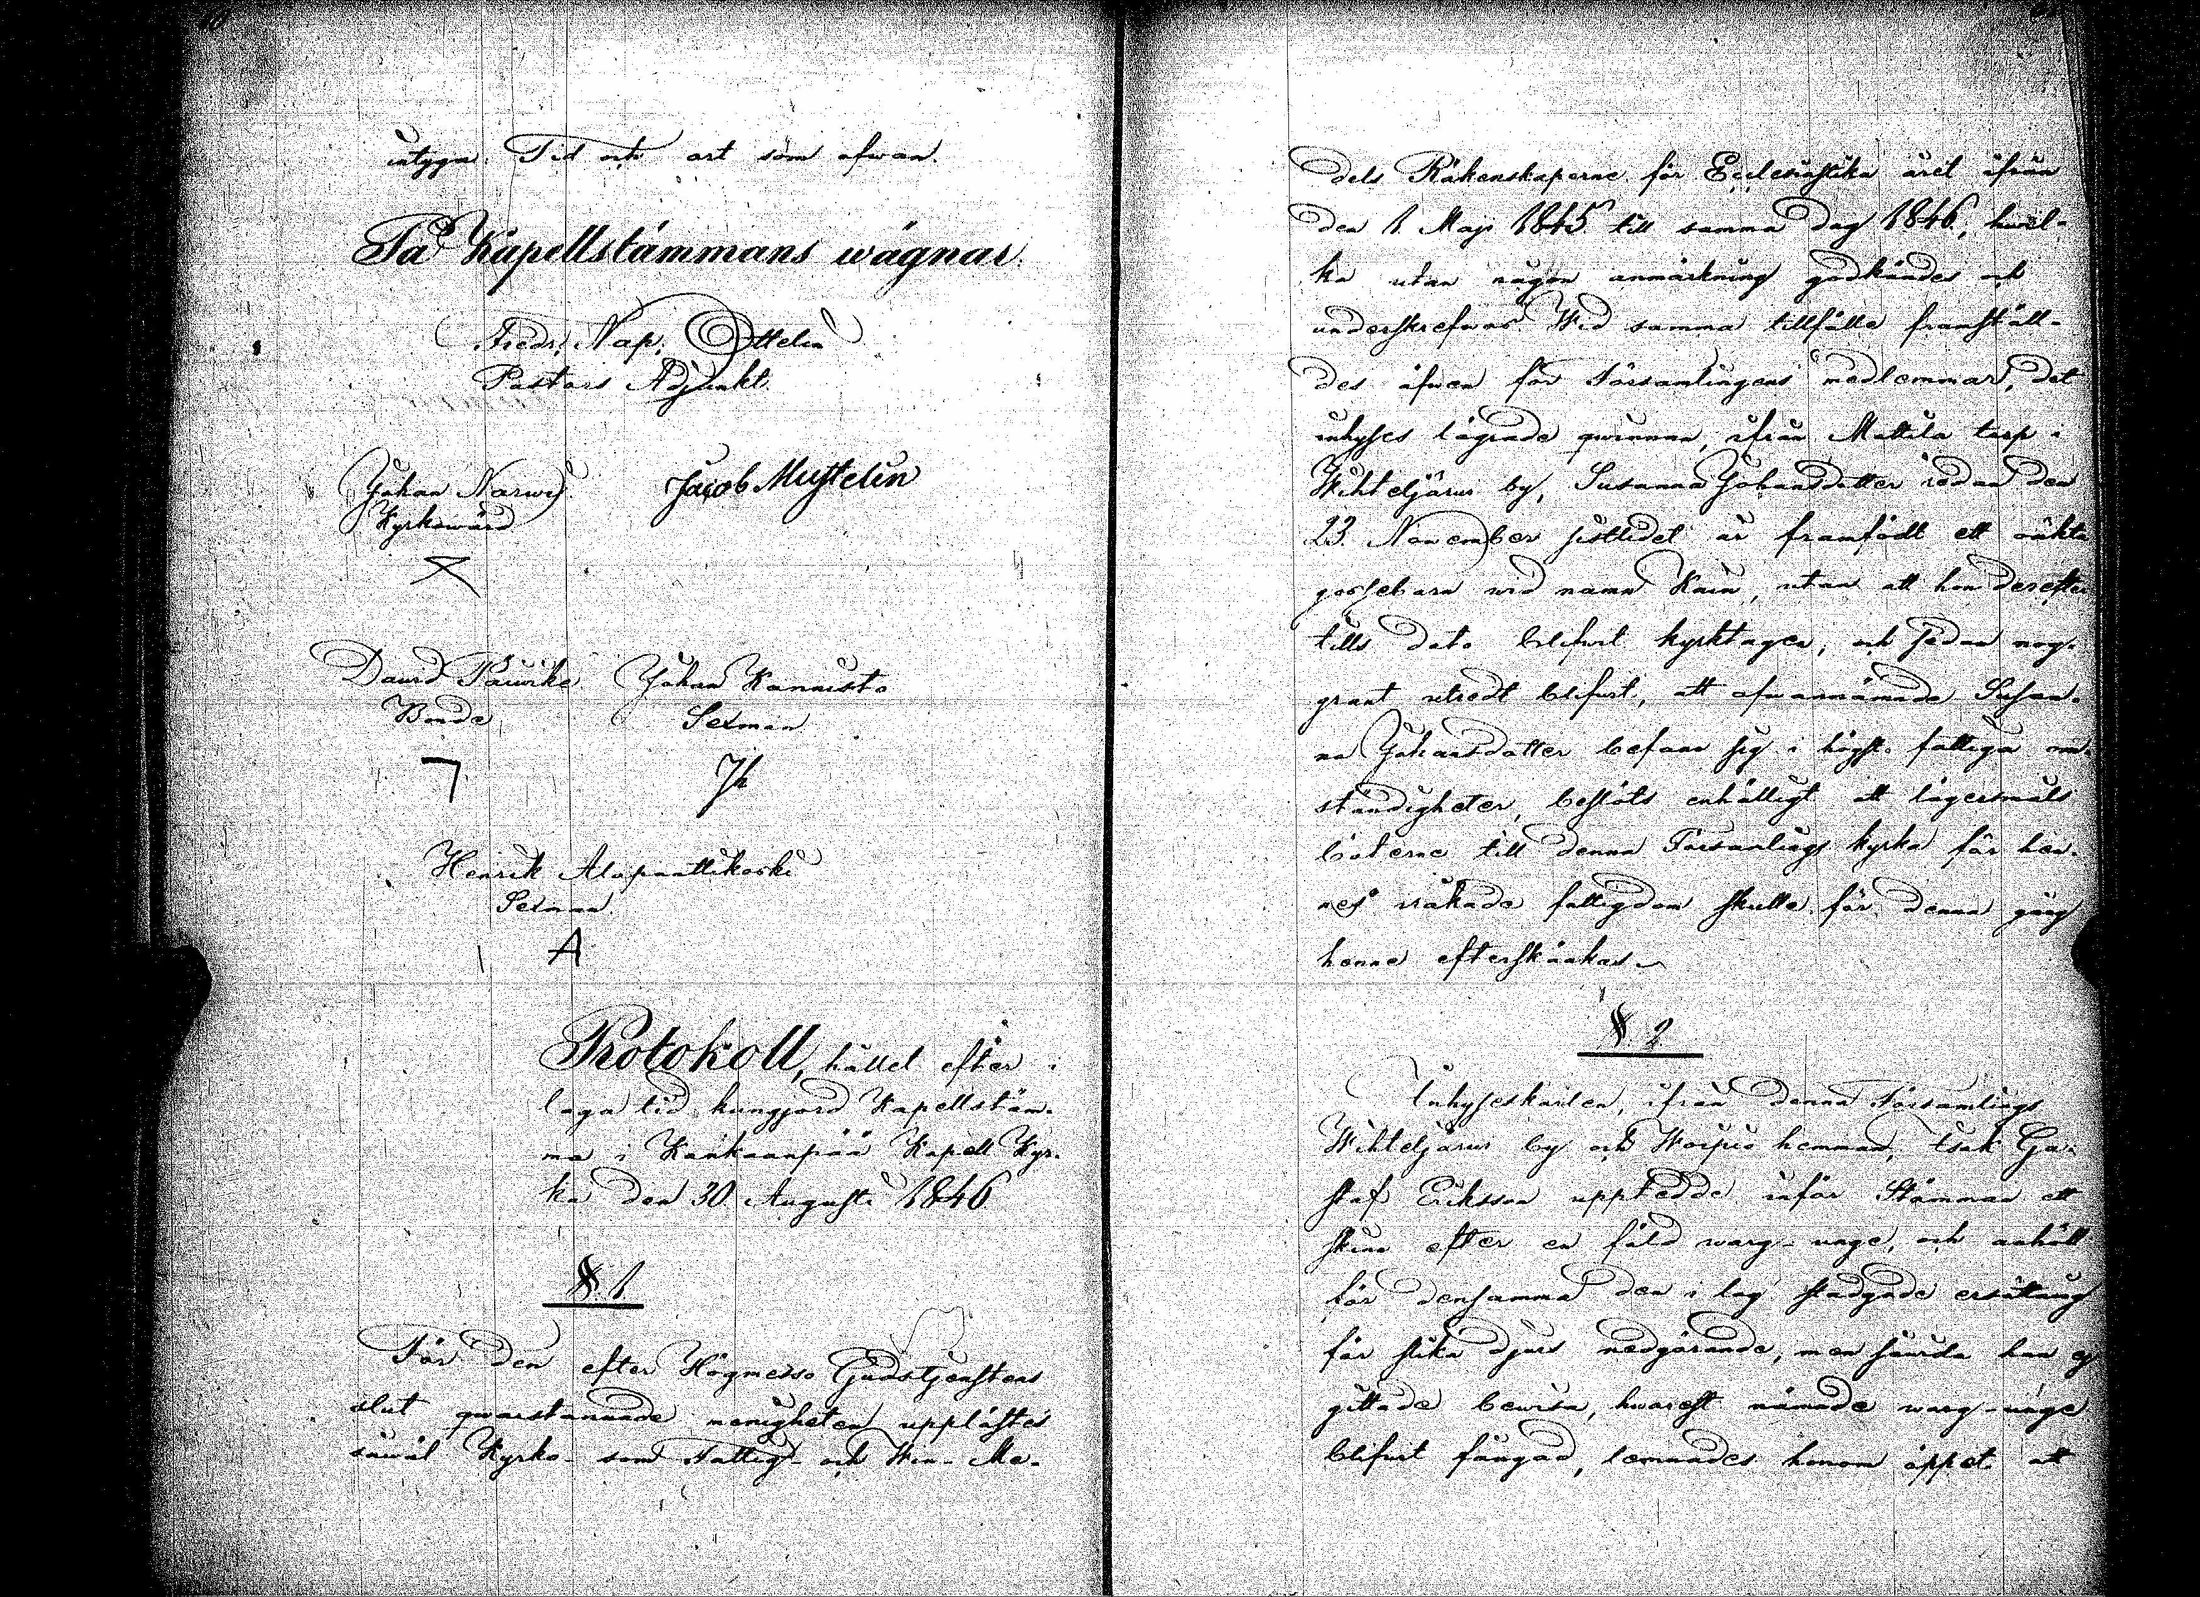 intyga. Tid och ort som ofwan.
På Kapellstämmans wägnar.
Fredr. Nap. Ottelin
Pastors Adjunkt.
Johan Narwi Jacob Mustelin
Kyrkowärd
David Päiwike Johan Kannisto
Bonde Sexman
Henrik Alapaattikoski
Sexman.
A
Protokoll, hållet efter i
laga tid kungjord Kapellstäm-
ma i Kankaanpää Kapell Kyr-
ka den 30 Augusti 1846.
§. 1
För den efter Högmesso Gudstjenstens
slut qwarstannade menigheten upplästes
såwäl Kyrko- som Fattig- och Win- Me-
dels Räkenskaperne för Ecclesiastika året ifrån
den 1. Maji 1845 till samma dag 1846, hwil-
ka utan någon anmärkning godkändes och
underskrefwos. Wid samma tillfälle framställ-
des äfwen för Församlingens medlemmar, det
inhyses lägrade qwinnan, ifrån Mattila torp i
Wihteljärwi by, Susanna Johansdotter redan den
23. November sistlidet år framfödt ett oäkta
gossebarn wid namn Kain, utan att hon derefter
tills dato blifwit kyrktagen, och sedan nog-
grant utredt blifwit, att ofwannämnde Susan-
na Johansdotter befann sig i högst fattiga om-
ständigheter, beslöts enhälligt att lägersmåls
böterne till denna Församlings kyrka för hen-
nes råkade fattigdom skulle för denna gång
henne efterskänkas.
§. 2.
Inhyseskarlen, ifrån denna Församlings
Wihteljärwi by och Worpio hemman, Isak Gu-
staf Eriksson uppledde inför Stämman ett
skinn efter en fäld warg-unge, och anhöll
för densamma den i lag stadgade ersättning
för slika djurs nedgörande, men såwida han ej
gittade bewisa, hwarest nämnde warg-unge
blifwit fångad, lemnades honom öppet att